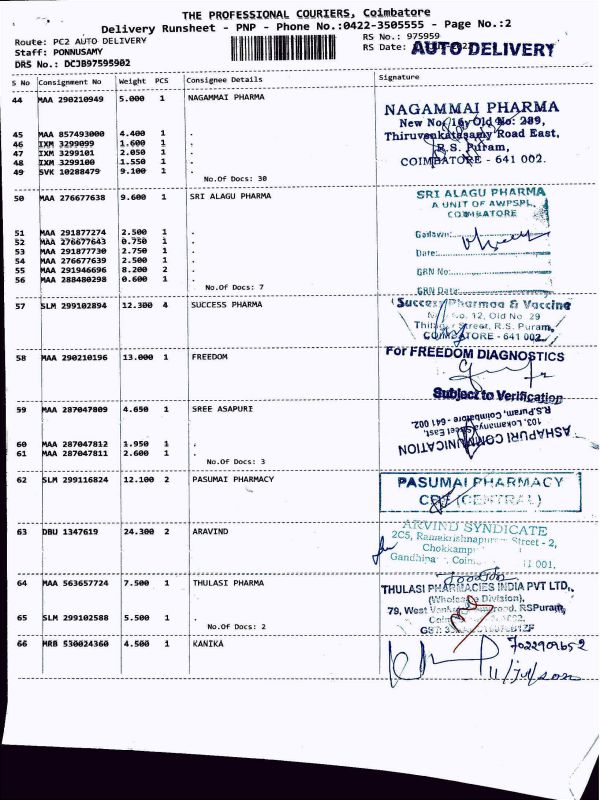 THE PROFESSIONAL COURIERS, Coimbatore
Delivery Runsheet - PNP - Phone No.:0422-3505555 - Page No.:2
Route: PC2 AUTO DELIVERY
RS No.: 975959
Staff: PONNUSAMY
RS Date:
AUTO DELIVERY
DRS No.: DCJB97595902
S No Consignment No Weight PCS Consignee Details Signature
44 MAA 290210949 5.000 1 NAGAMMAI PHARMA
NAGAMMAI PHARMA
New No. 16, Old No: 289,
Thiruvenkatasamy Road East,
R.S. Puram,
COIMBATORE - 641 002.
45 MAA 857493000 4.400 1 .
46 IXM 3299099 1.600 1 .
47 IXM 3299101 2.050 1 .
48 IXM 3299100 1.550 1 .
49 SVK 10288479 9.100 1 .
No.Of Docs: 30
50 MAA 276677638 9.600 1 SRI ALAGU PHARMA
SRI ALAGU PHARMA
A UNIT OF AWPSPL,
COIMBATORE
Godown:
Date:
GRN No:
GRN Date:
51 MAA 291877274 2.500 1 .
52 MAA 276677643 0.750 1 .
53 MAA 291877730 2.750 1 .
54 MAA 276677639 2.500 1 .
55 MAA 291946696 8.200 2 .
56 MAA 288480298 0.600 1 .
No.Of Docs: 7
57 SLM 299102894 12.300 4 SUCCESS PHARMA
Success Pharmaa & Vaccine
No. 12, Old No. 29
Street, R.S. Puram,
COIMBATORE - 641 002.
58 MAA 290210196 13.000 1 FREEDOM
For FREEDOM DIAGNOSTICS
Subject to Verification
59 MAA 287047809 4.650 1 SREE ASAPURI
ASHAPURI COMMUNICATION
103, Lokamanya Street East,
R.S.Puram, Coimbatore - 641 002.
60 MAA 287047812 1.950 1 .
61 MAA 287047811 2.600 1 .
No.Of Docs: 3
62 SLM 299116824 12.100 2 PASUMAI PHARMACY
PASUMAI PHARMACY
(CENTRAL)
63 DBU 1347619 24.300 2 ARAVIND
ARVIND SYNDICATE
2C5, Ramakrishnapuram Street - 2,
Chokkamp
Gandhipa Coim 11 001.
64 MAA 563657724 7.500 1 THULASI PHARMA
THULASI PHARMACIES INDIA PVT LTD.,
(Wholesale Division),
79, West Road, RSPuram,
65 SLM 299102588 5.500 1 .
No.Of Docs: 2
66 MRB 530024360 4.500 1 KANIKA
7022909652